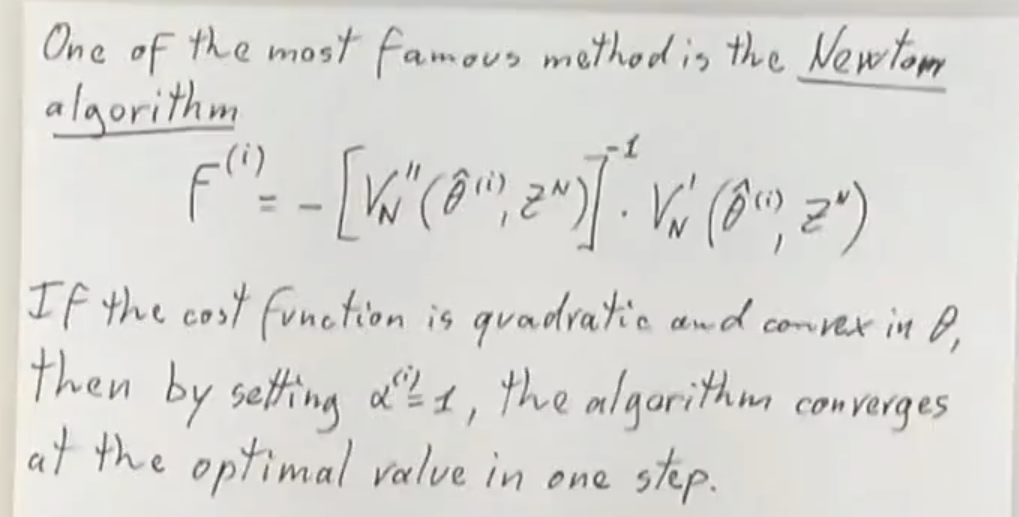 One of the most famous method is the Newton
algorithm
F^(i) = - [V_N''(θ̂^(i), Z^N)]^-1 · V_N'(θ̂^(i), Z^N)
If the cost function is quadratic and convex in θ,
then by setting α^(i) = 1, the algorithm converges
at the optimal value in one step.